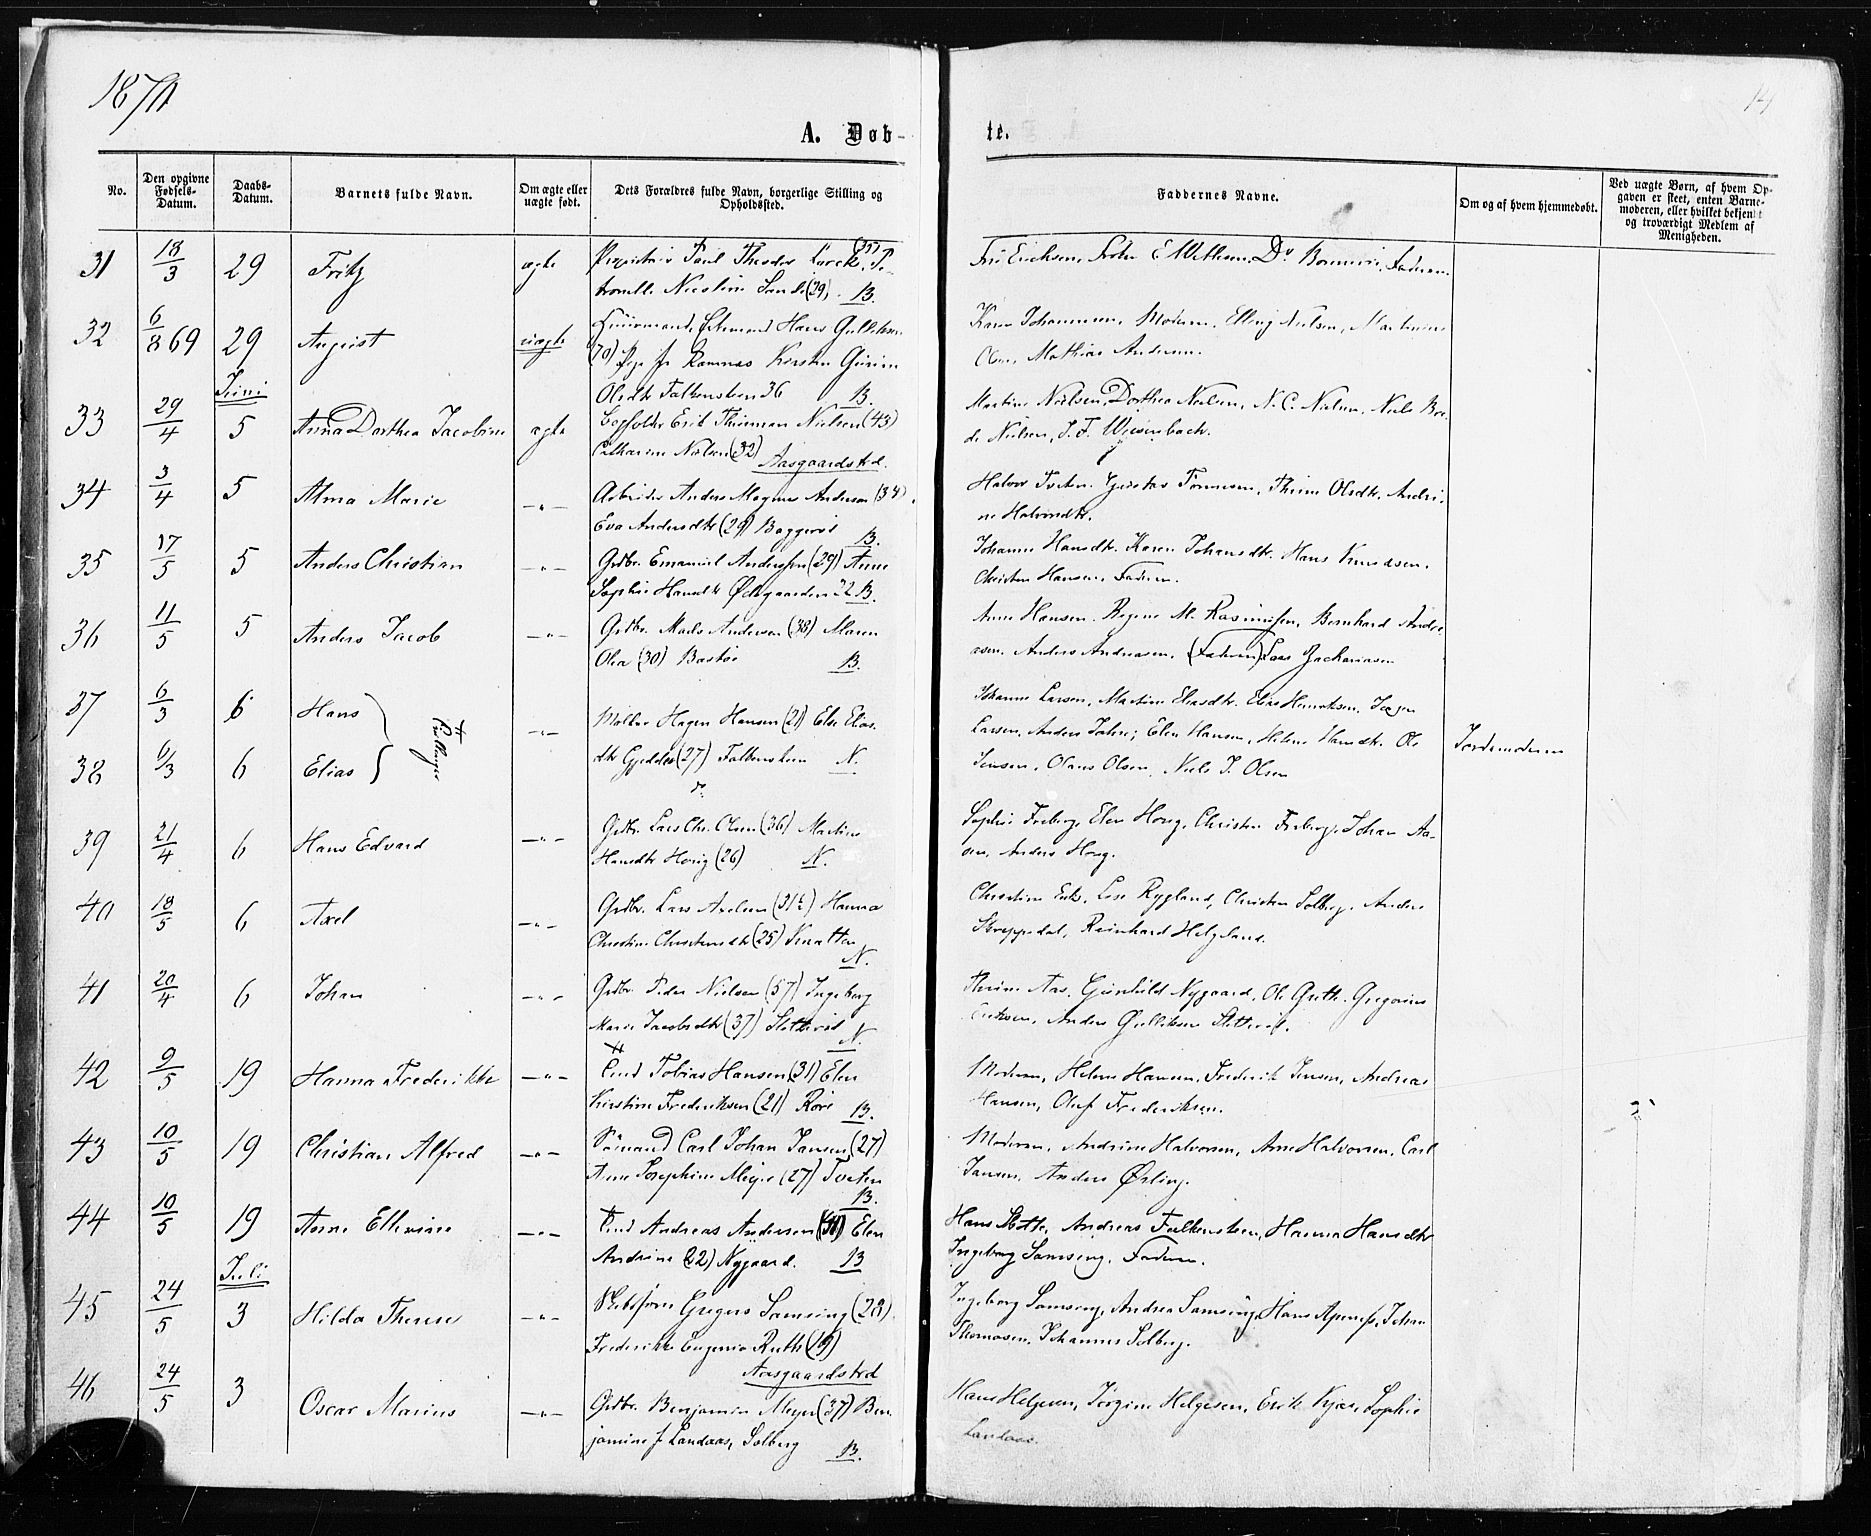 1870
14
A. Døb-
te.
No.
Den opgivne Fødsels-Datum.
Daabs-Datum.
Barnets fulde Navn.
Om ægte eller uægte født.
Dets Forældres fulde Navn, borgerlige Stilling og Opholdssted.
Faddernes Navne.
Om og af hvem hjemmedøbt.
Ved uægte Børn, af hvem Opgaven er skeet, enten Barnemoderen, eller hvilket bekjendt og troværdigt Medlem af Menigheden.
31 18/3 29 Fritz ægte Paul Theodor
Sand (29). B.
Faderen
32 6/8 69 29 August uægte Hans Gulliksen
(70) Pige Ramnæs Kirsten
Olsdtr Falkensteen 36 B.
Karen Johannesen, Moderen, Elling Nielsen,
Mathias Andersen.
Juni
33 29/4 5 Anna Dorthea Jacobine ægte Erik Nielsen (43)
Catharine Nielsen (32)
Aasgaardstrd.
Martine Nielsen, Dorthea Nielsen, N. C. Nielsen, Niels
Nielsen, J. F. Weisenbach.
34 3/4 5 Alma Marie -"- Arbeider Anders Magnus Andersen (34).
Eva Andersdtr (29) Baggerød B.
Halvor Tveten, Gustav Tønnesen, Thrine Olsdtr. Andri-
ne Halvorsdtr.
35 17/5 5 Anders Christian -"- Grdbr. Emanuel Anderssen (29) Anne
Sophie Hansdtr Ødegaarden 22 B.
Johanne Hansdtr. Karen Johansdtr. Hans Knudsen.
Christen Hansen. Faderen.
36 11/5 5 Anders Jacob -"- Grdbr. Mads Andersen (38) Maren
Olea (30) Bastøe B.
Anne Hansen. Regine M. Rasmussen, Bernhard Andre-
asen. Anders Andreasen. (Faderen) Lars Zachariasen
37 6/3 6 Hans Tvillinger -"- Møller Hagen Hansen (21) Else Elias-
38 6/3 6 Elias
dtr Gjedder (27) Falkensteen N.
Johanne Larsen, Martine Eliasdtr. Elias Henriksen. Jørgen
Larsen, Anders Elen Hansen, Helene Hansdtr. Ole
Jensen, Olaus Olsen, Niels J. Olsen
Jordemoderen
39 21/4 6 Hans Edvard -"- Grdbr. Lars Chr. Olsen (36) Martine
Hansdtr Houg (26) N.
Sophie Freberg, Elen Houg, Christen Freberg, Johan Aa-
sen, Anders Houg.
40 18/5 6 Axel -"- Grdbr. Lars Axelsen (31½) Hanna
Christine Christensdtr (25) Knatten
N.
Christine Lise Rygland, Christen Solberg. Anders
Skreppedal, Reinhard Helgeland.
41 20/4 6 Johan -"- Grdbr. Peder Nielsen (57) Ingeborg
Marie Jacobsdtr (37) Slotterød N.
Thrine Aas, Gunhild Nygaard, Ole Gregorius
Eriksen, Anders Gulliksen Slotterød.
42 9/5 19 Hanna Frederikke -"- Tobias Hansen (31) Elen
Kirstine Frederiksen (21) Røre B.
Moderen, Helene Hansen, Frederik Jensen, Andreas
Hansen, Oluf Frederiksen.
43 10/5 19 Christian Alfred -"- Sømand Carl Johan Jansen (27)
Anne Josephine Meyer (27) Tveten
B.
Moderen, Andrine Halvorsen, Arne Halvorsen, Carl
Jansen. Anders Ørling.
44 10/5 19 Anne Ellevine -"- Andreas Andersen Elen
Andrine (22) Nygaard. B
Hans Slotte, Andreas Falkensteen, Hanna Hansdtr
Ingeborg Samsing, Faderen.
Juli
45 24/5 3 Hilda Therese -"- Skibsfører Gregers Samsing (28)
Frederikke Eugenia Ruth (19)
Aasgaardstrd
Ingeborg Samsing, Andrea Samsing, Hans Apenæs, Johan
Thomasen, Johannes Solberg.
46 24/5 3 Oscar Marius -"- Grdbr. Benjamin Meyer (37) Ben-
jamine f Landaas, Solberg B.
Hans Helgesen, Jørgine Helgesen, Erik Kjær, Sophie
Landaas.